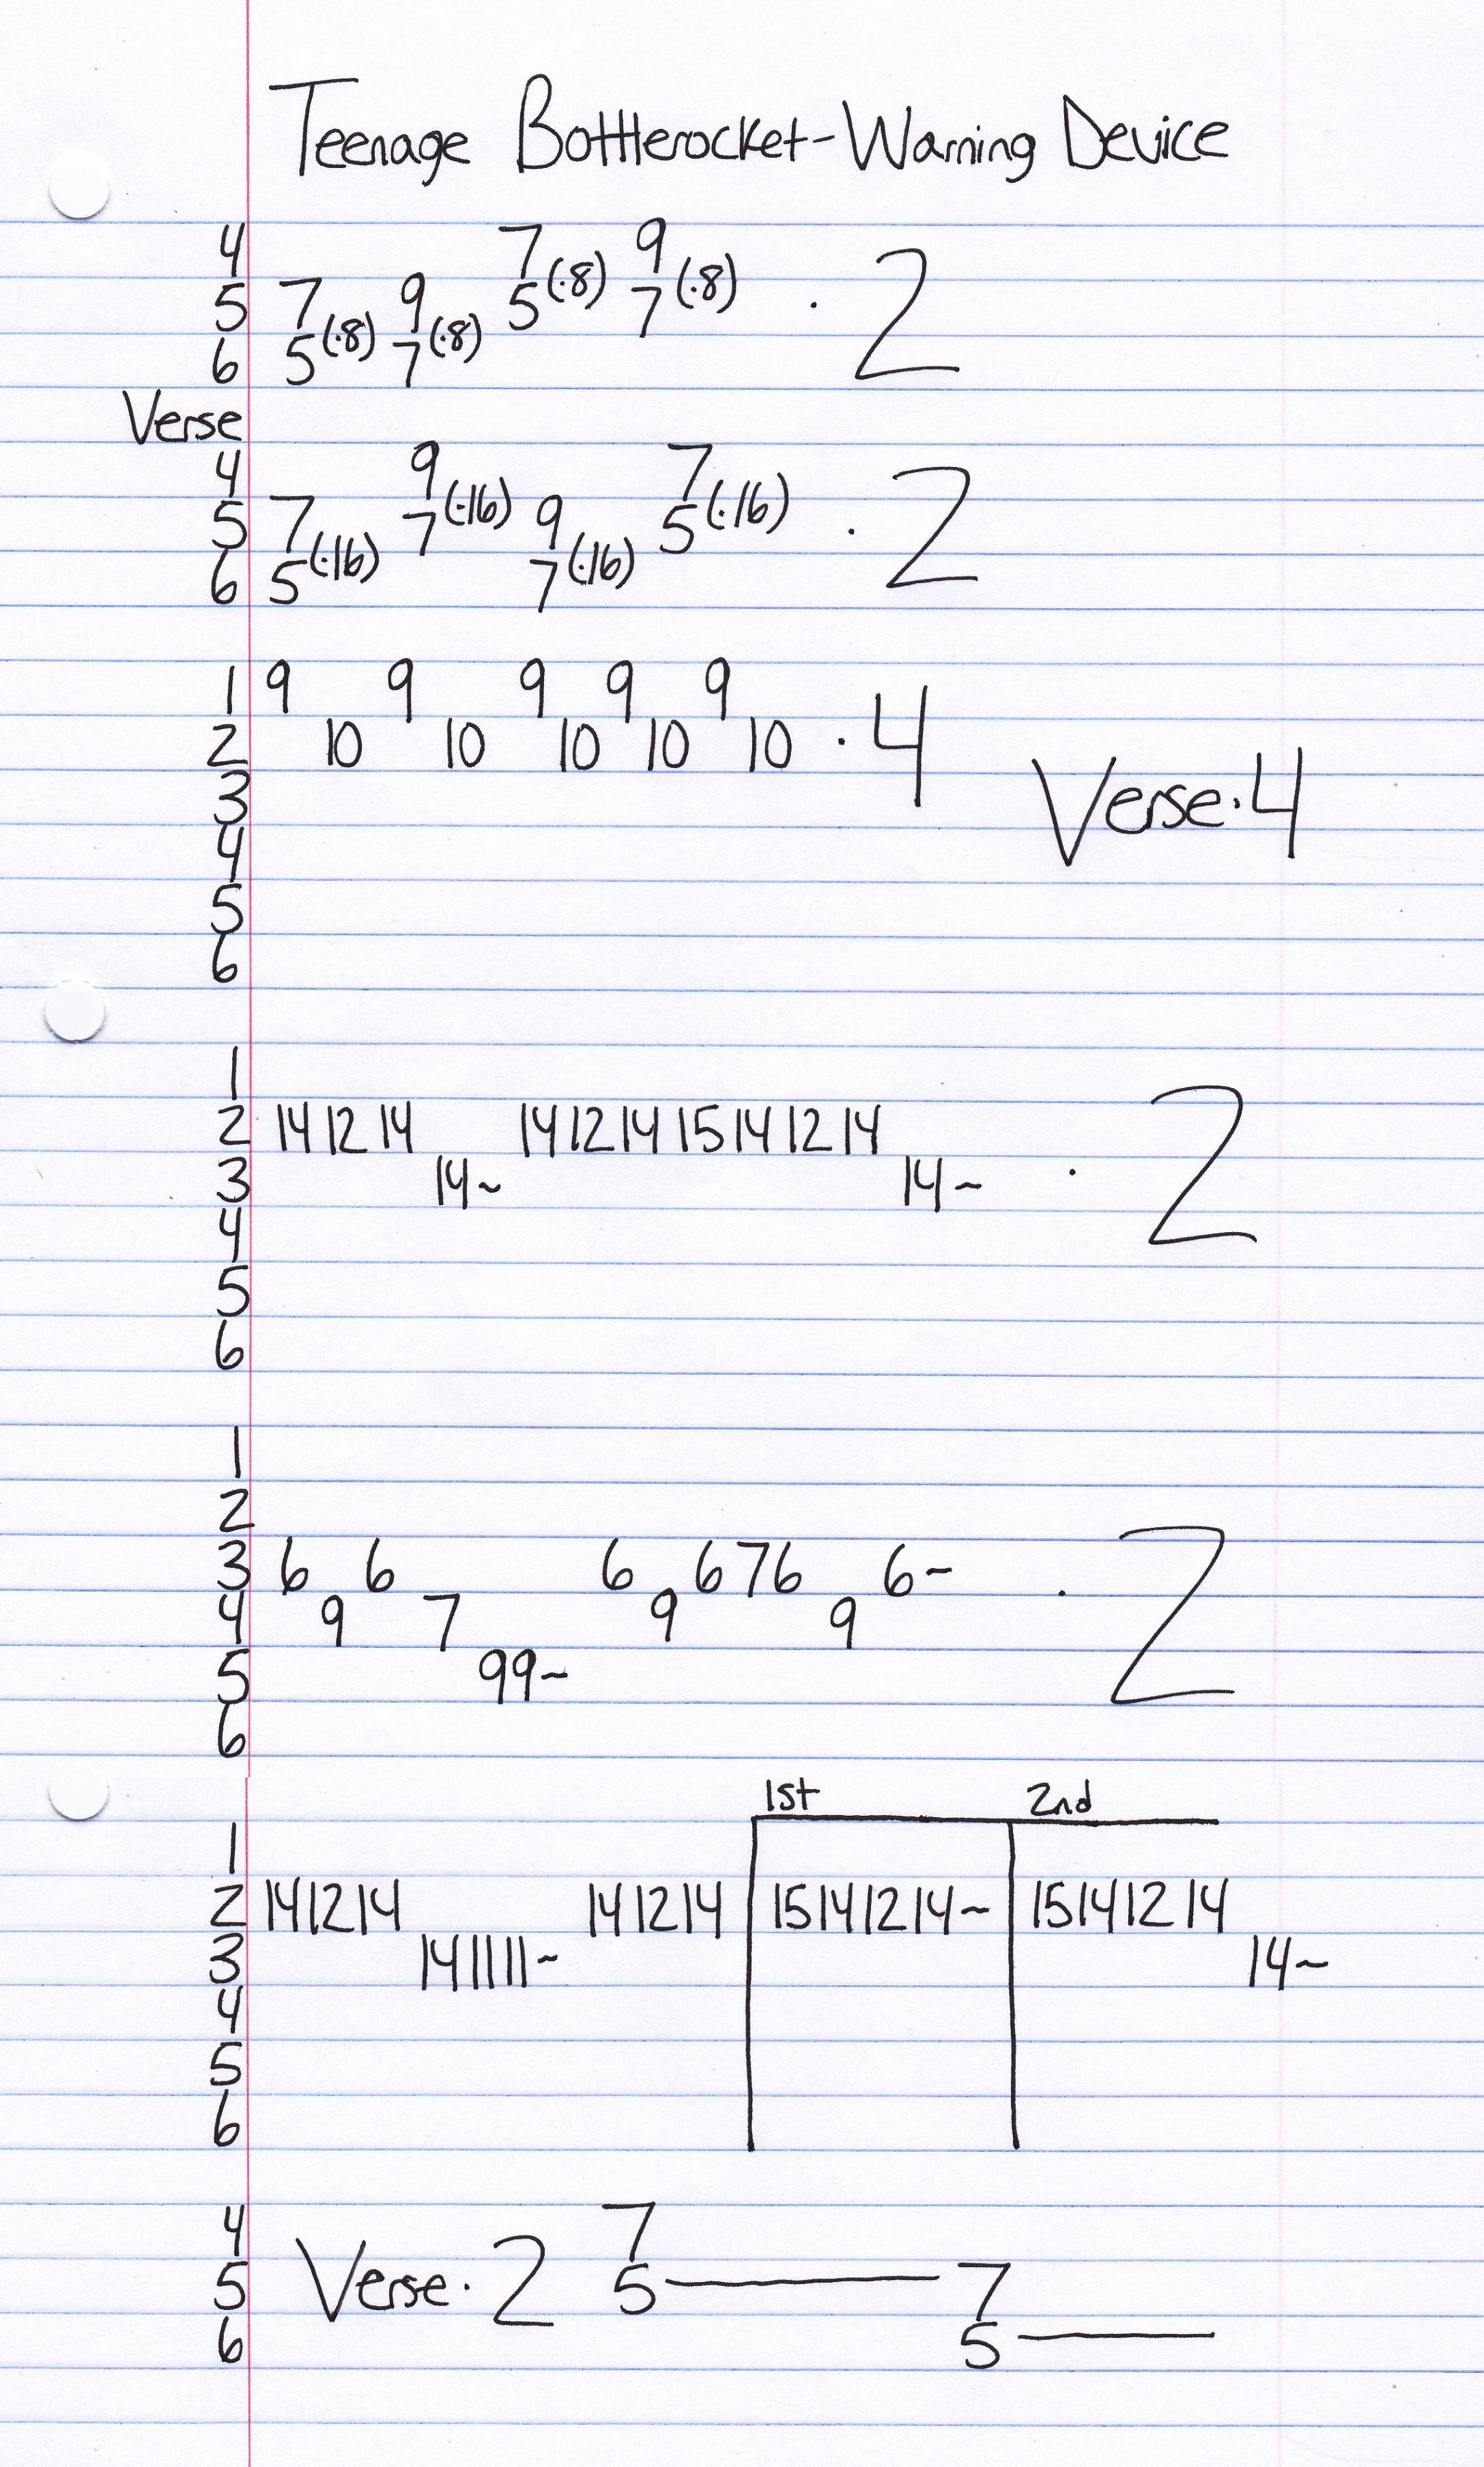 Teenage Bottlerocket-Warning Device
4 7 9
5 7 9 5(·8) 7(·8) · 2
6 5(·8) 7(·8)
Verse
4 9 7
5 7 7(·16) 9 5(·16) · 2
6 5(·16) 7(·16)
1 9 9 9 9 9
2 10 10 10 10 10 · 4
3 Verse·4
4
5
6
1
2 14 12 14 14 12 14 15 14 12 14
3 14~ 14~ · 2
4
5
6
1
2
3 6 6 6 6 7 6 6~ · 2
4 9 7 9 9
5 9 9~
6
1st 2nd
1
2 14 12 14 14 12 14 15 14 12 14~ 15 14 12 14
3 14 11 11~ 14~
4
5
6
4 7
5 Verse·2 5 7
6 5